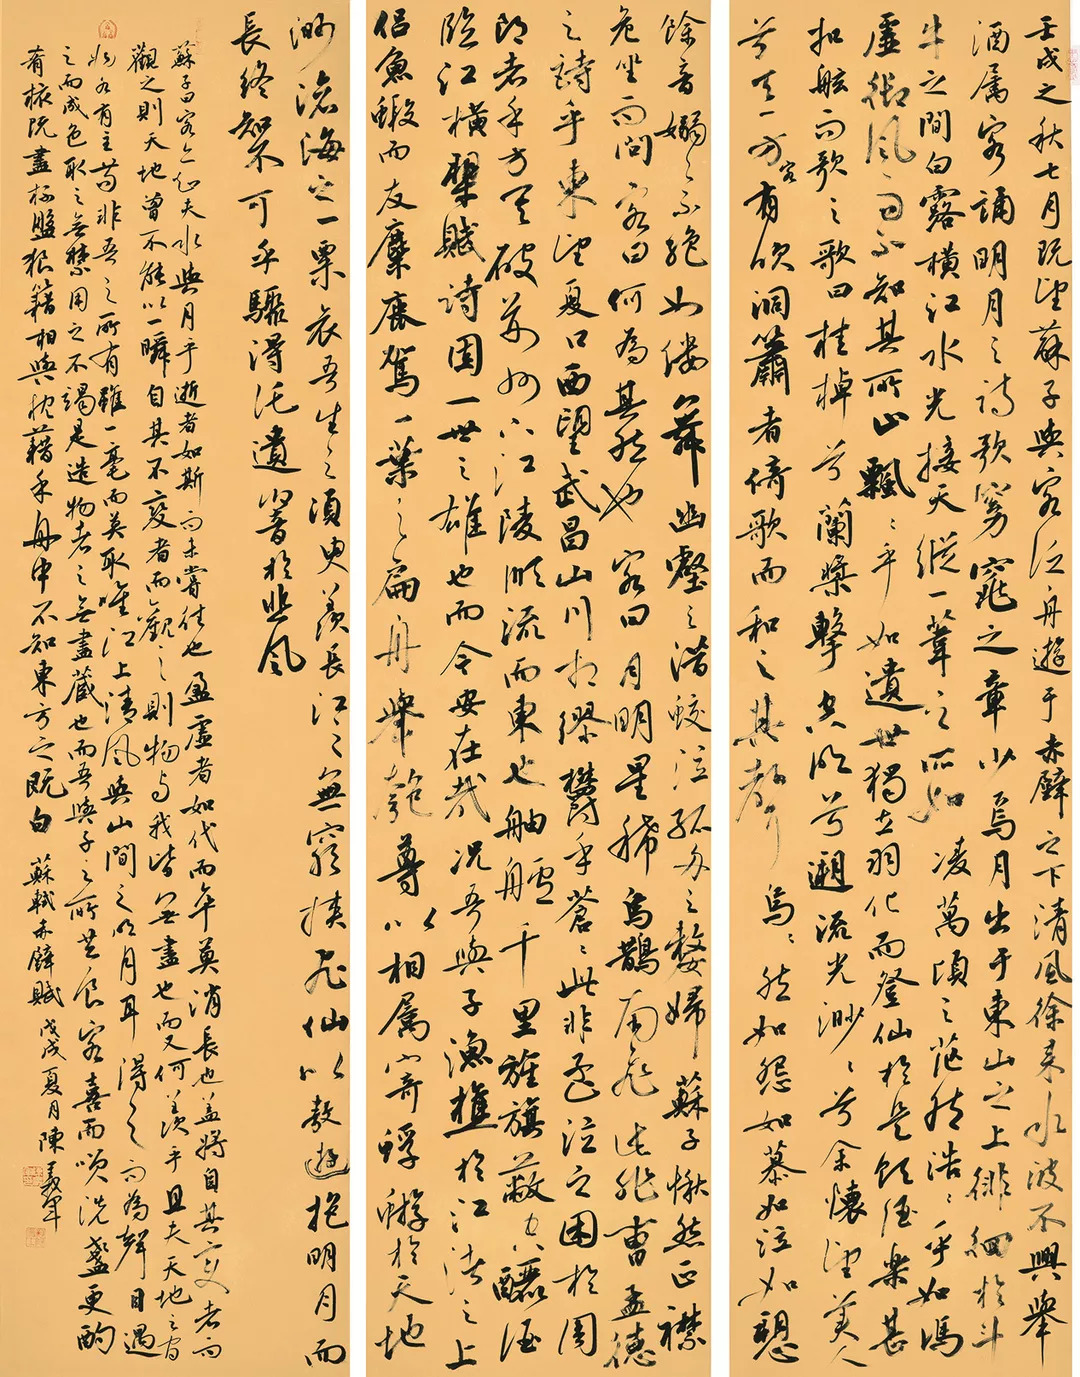 壬戌之秋七月既望蘇子與客泛舟遊于赤壁之下清風徐來水波不興舉
酒属客誦明月之詩歌窈窕之章少焉月出于東山之上徘徊於斗
牛之間白露橫江水光接天縱一葦之所如凌萬頃之茫然浩〻乎如馮
虛御風而不知其所止飄〻乎如遺世獨立羽化而登仙於是飲酒樂甚
扣舷而歌之歌曰桂棹兮蘭槳擊空明兮遡流光渺〻兮余懷望美人
兮天一方客有吹洞簫者倚歌而和之其聲烏〻然如怨如慕如泣如訴
餘音嫋〻不絕如縷舞幽壑之潜蛟泣孤舟之嫠婦蘇子愀然正襟
危坐而問客曰何為其然也客曰月明星稀烏鵲南飛此非曹孟德
之詩乎東望夏口西望武昌山川相繆欝乎蒼〻此非孟德之困於周
郎者乎方其破荊州下江陵順流而東也舳艫千里旌旗蔽空釃酒
臨江橫槊賦詩固一世之雄也而今安在哉况吾與子漁樵於江渚之上
侣魚蝦而友麋鹿駕一葉之扁舟舉匏尊以相属寄蜉蝣於天地
渺滄海之一粟哀吾生之須臾羨長江之無窮挟飛仙以敖遊抱明月而
長終知不可乎驟得託遺響於悲風
蘇子曰客亦知夫水與月乎逝者如斯而未嘗往也盈虛者如代而卒莫消長也盖將自其变者而
觀之則天地曾不能以一瞬自其不变者而觀之則物与我皆無盡也而又何羨乎且夫天地之間
物各有主苟非吾之所有雖一毫而莫取唯江上清風與山間之明月耳得之而為聲目遇
之而成色取之無禁用之不竭是造物者之無盡藏也而吾與子之所共食客喜而笑洗盞更酌
肴核既盡杯盤狼籍相與枕藉乎舟中不知東方之既白 蘇軾赤壁賦 戊戌夏月陳義軍